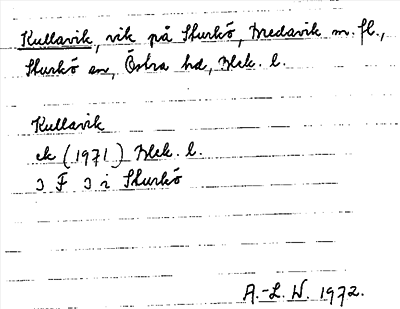 Kullavik, vik på Sturkö, Bredavik m. fl.,
Sturkö sn, Östra hd, Blek. l.
Kullavik
ek (1971) Blek. l.
3 F 3 i Sturkö
A.-L. W. 1972.